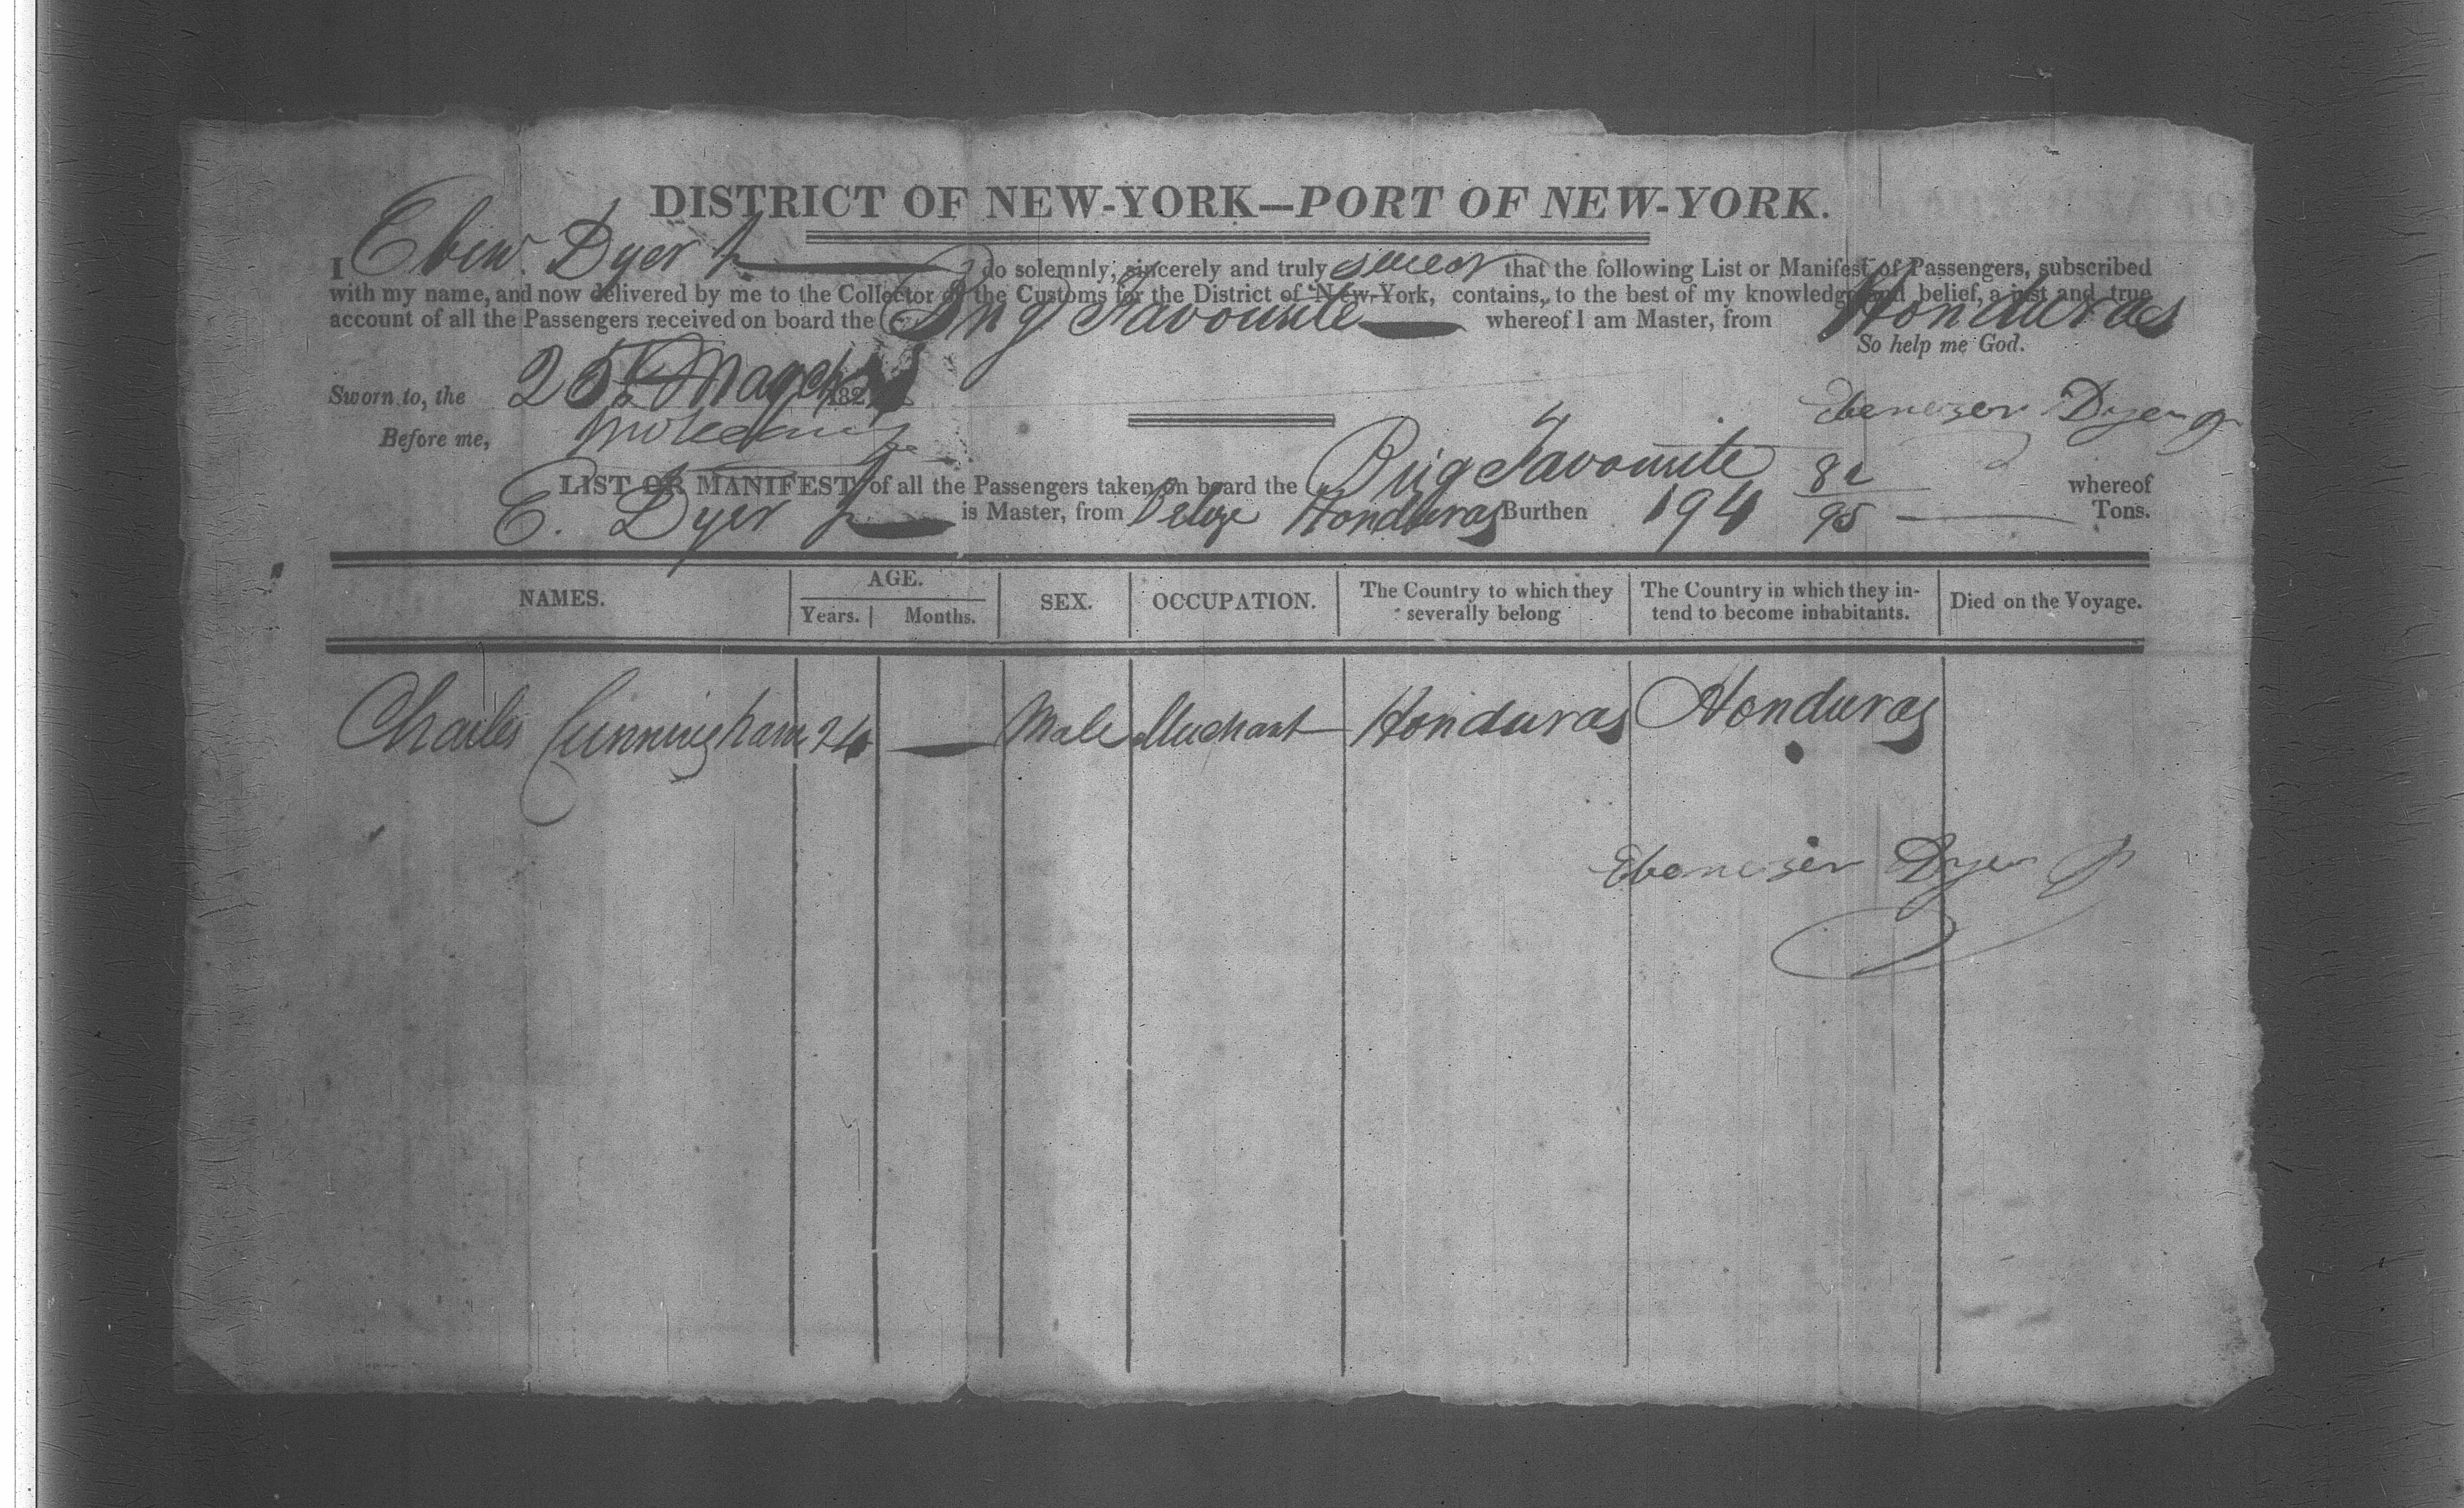 DISTRICT OF NEW-YORK—PORT OF NEW-YORK.
I Eben. Dyer Jr do solemnly, sincerely and truly swear that the following List or Manifest of Passengers, subscribed
with my name, and now delivered by me to the Collector of the Customs for the District of New-York, contains, to the best of my knowledge and belief, a just and true
account of all the Passengers received on board the Brig Favourite whereof I am Master, from Honduras
So help me God.
Sworn to, the 25 March 182
Ebenezer Dyer Jr
Before me,
LIST OR MANIFEST of all the Passengers taken on board the Brig Favourite whereof
E. Dyer Jr is Master, from Belize Honduras Burthen 194 82/95 Tons.
NAMES. AGE. Years. Months. SEX. OCCUPATION. The Country to which they severally belong The Country in which they intend to become inhabitants. Died on the Voyage.
Charles Cunningham 24 — Male Merchant Honduras Honduras
Ebenezer Dyer Jr